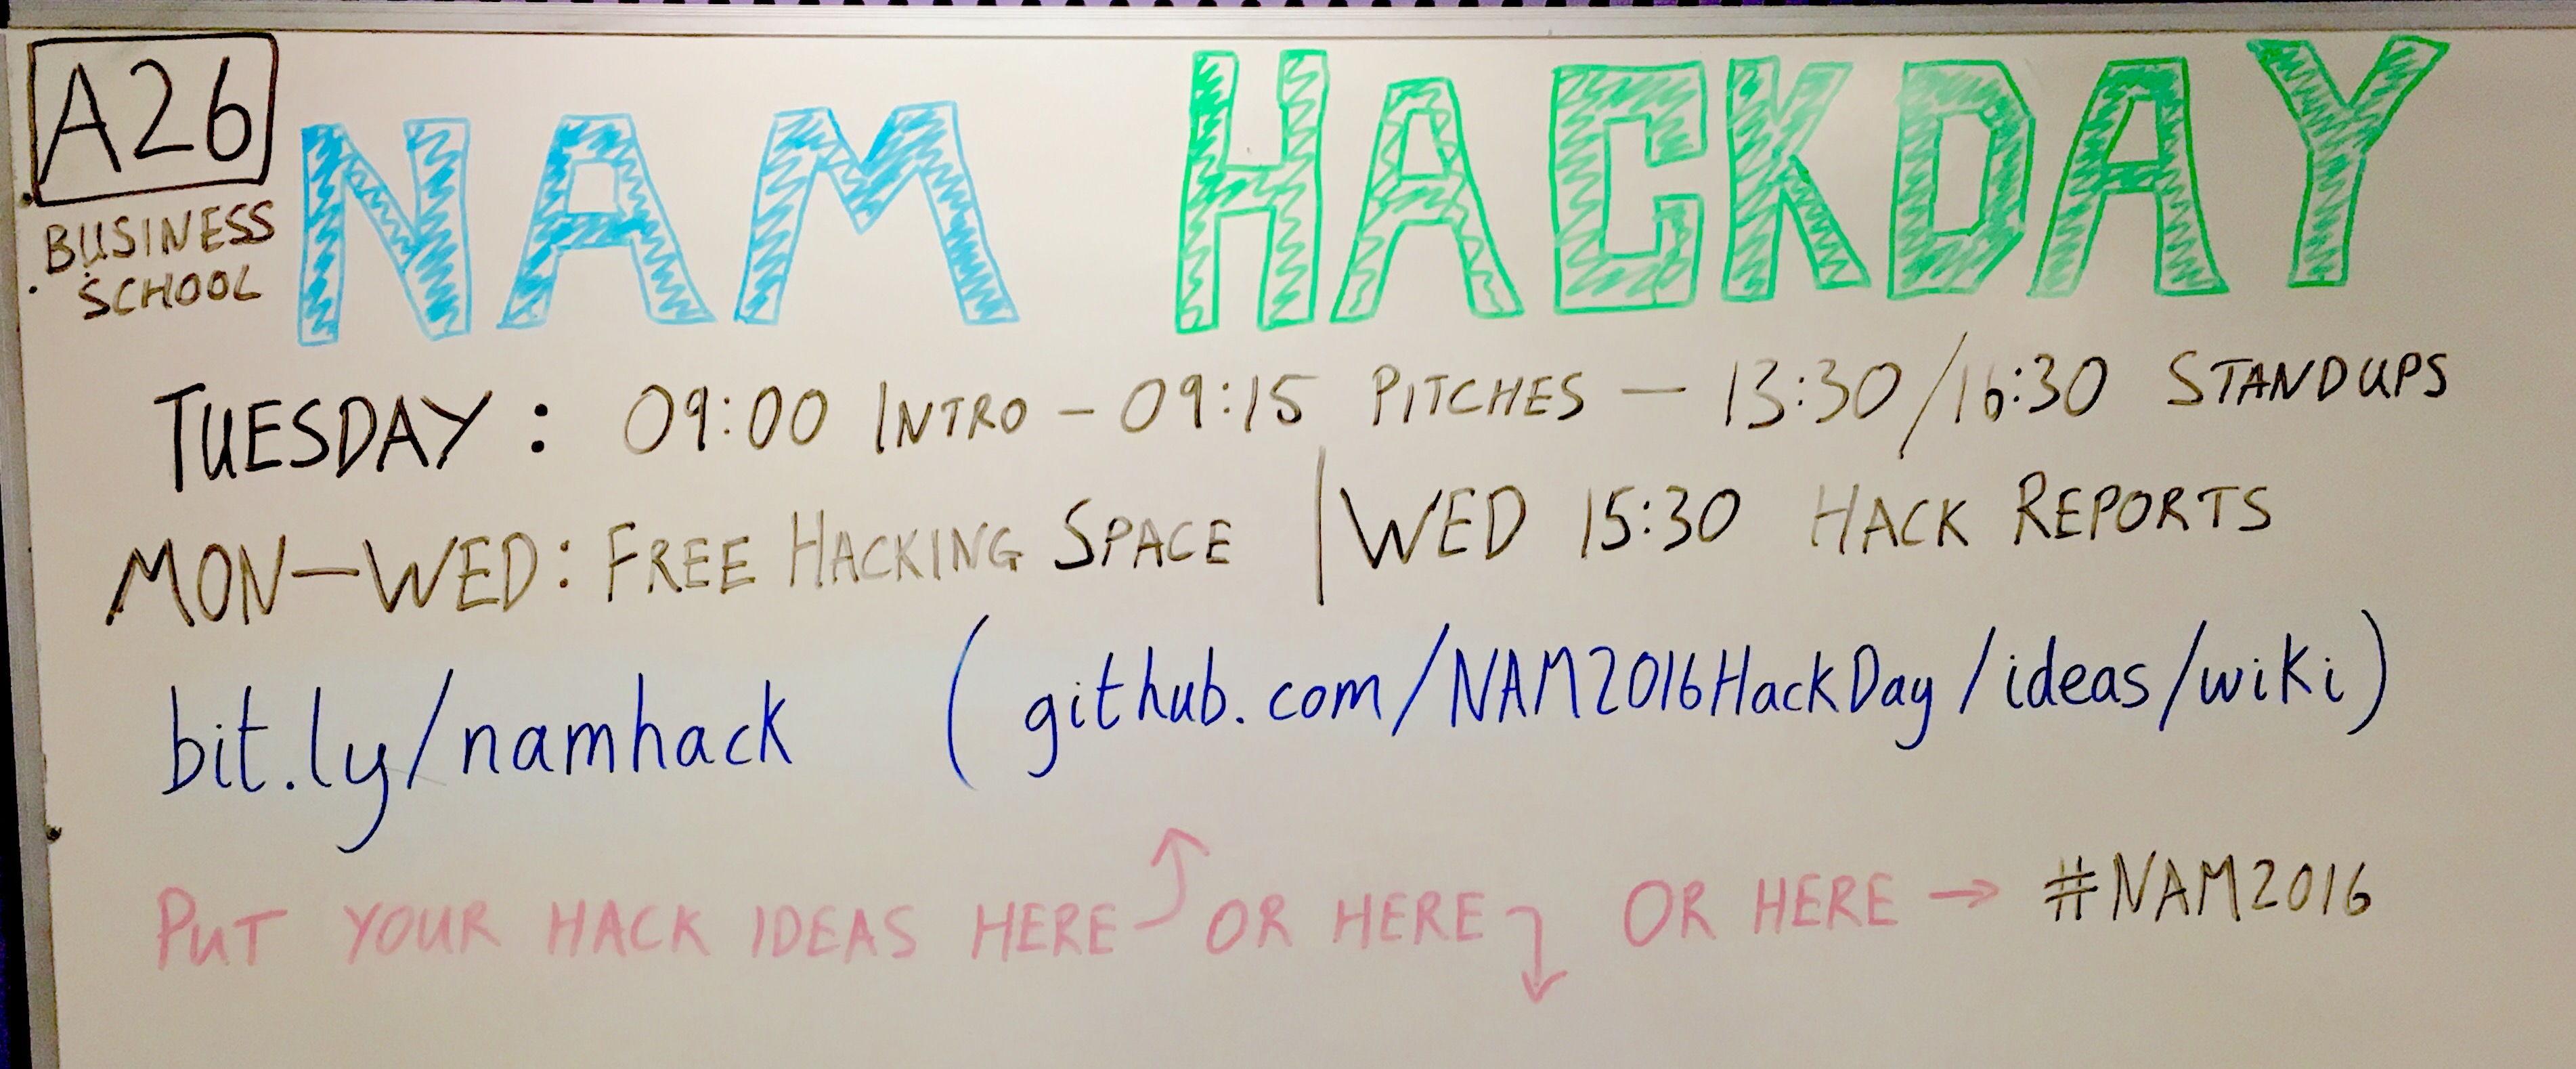 A26
BUSINESS
SCHOOL
NAM HACKDAY
TUESDAY: 09:00 INTRO - 09:15 PITCHES - 13:30/16:30 STANDUPS
MON-WED: FREE HACKING SPACE | WED 15:30 HACK REPORTS
bit.ly/namhack (github.com/NAM2016HackDay/ideas/wiki)
PUT YOUR HACK IDEAS HERE ⤴ OR HERE ⤵ OR HERE → #NAM2016